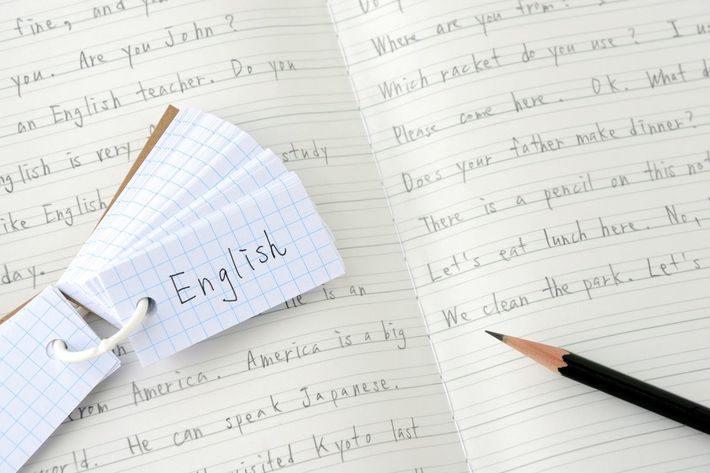 fine, and you
you. Are you John?
an English teacher. Do you
English is very study
like English
day.
He is an
from America. America is a big
world. He can speak Japanese.
visited Kyoto last
English
Do
Where are you from?
Which racket do you use? I us
Please come here. OK. What d
Does your father make dinner?
There is a pencil on this not
Let's eat lunch here. No,
We clean the park. Let's